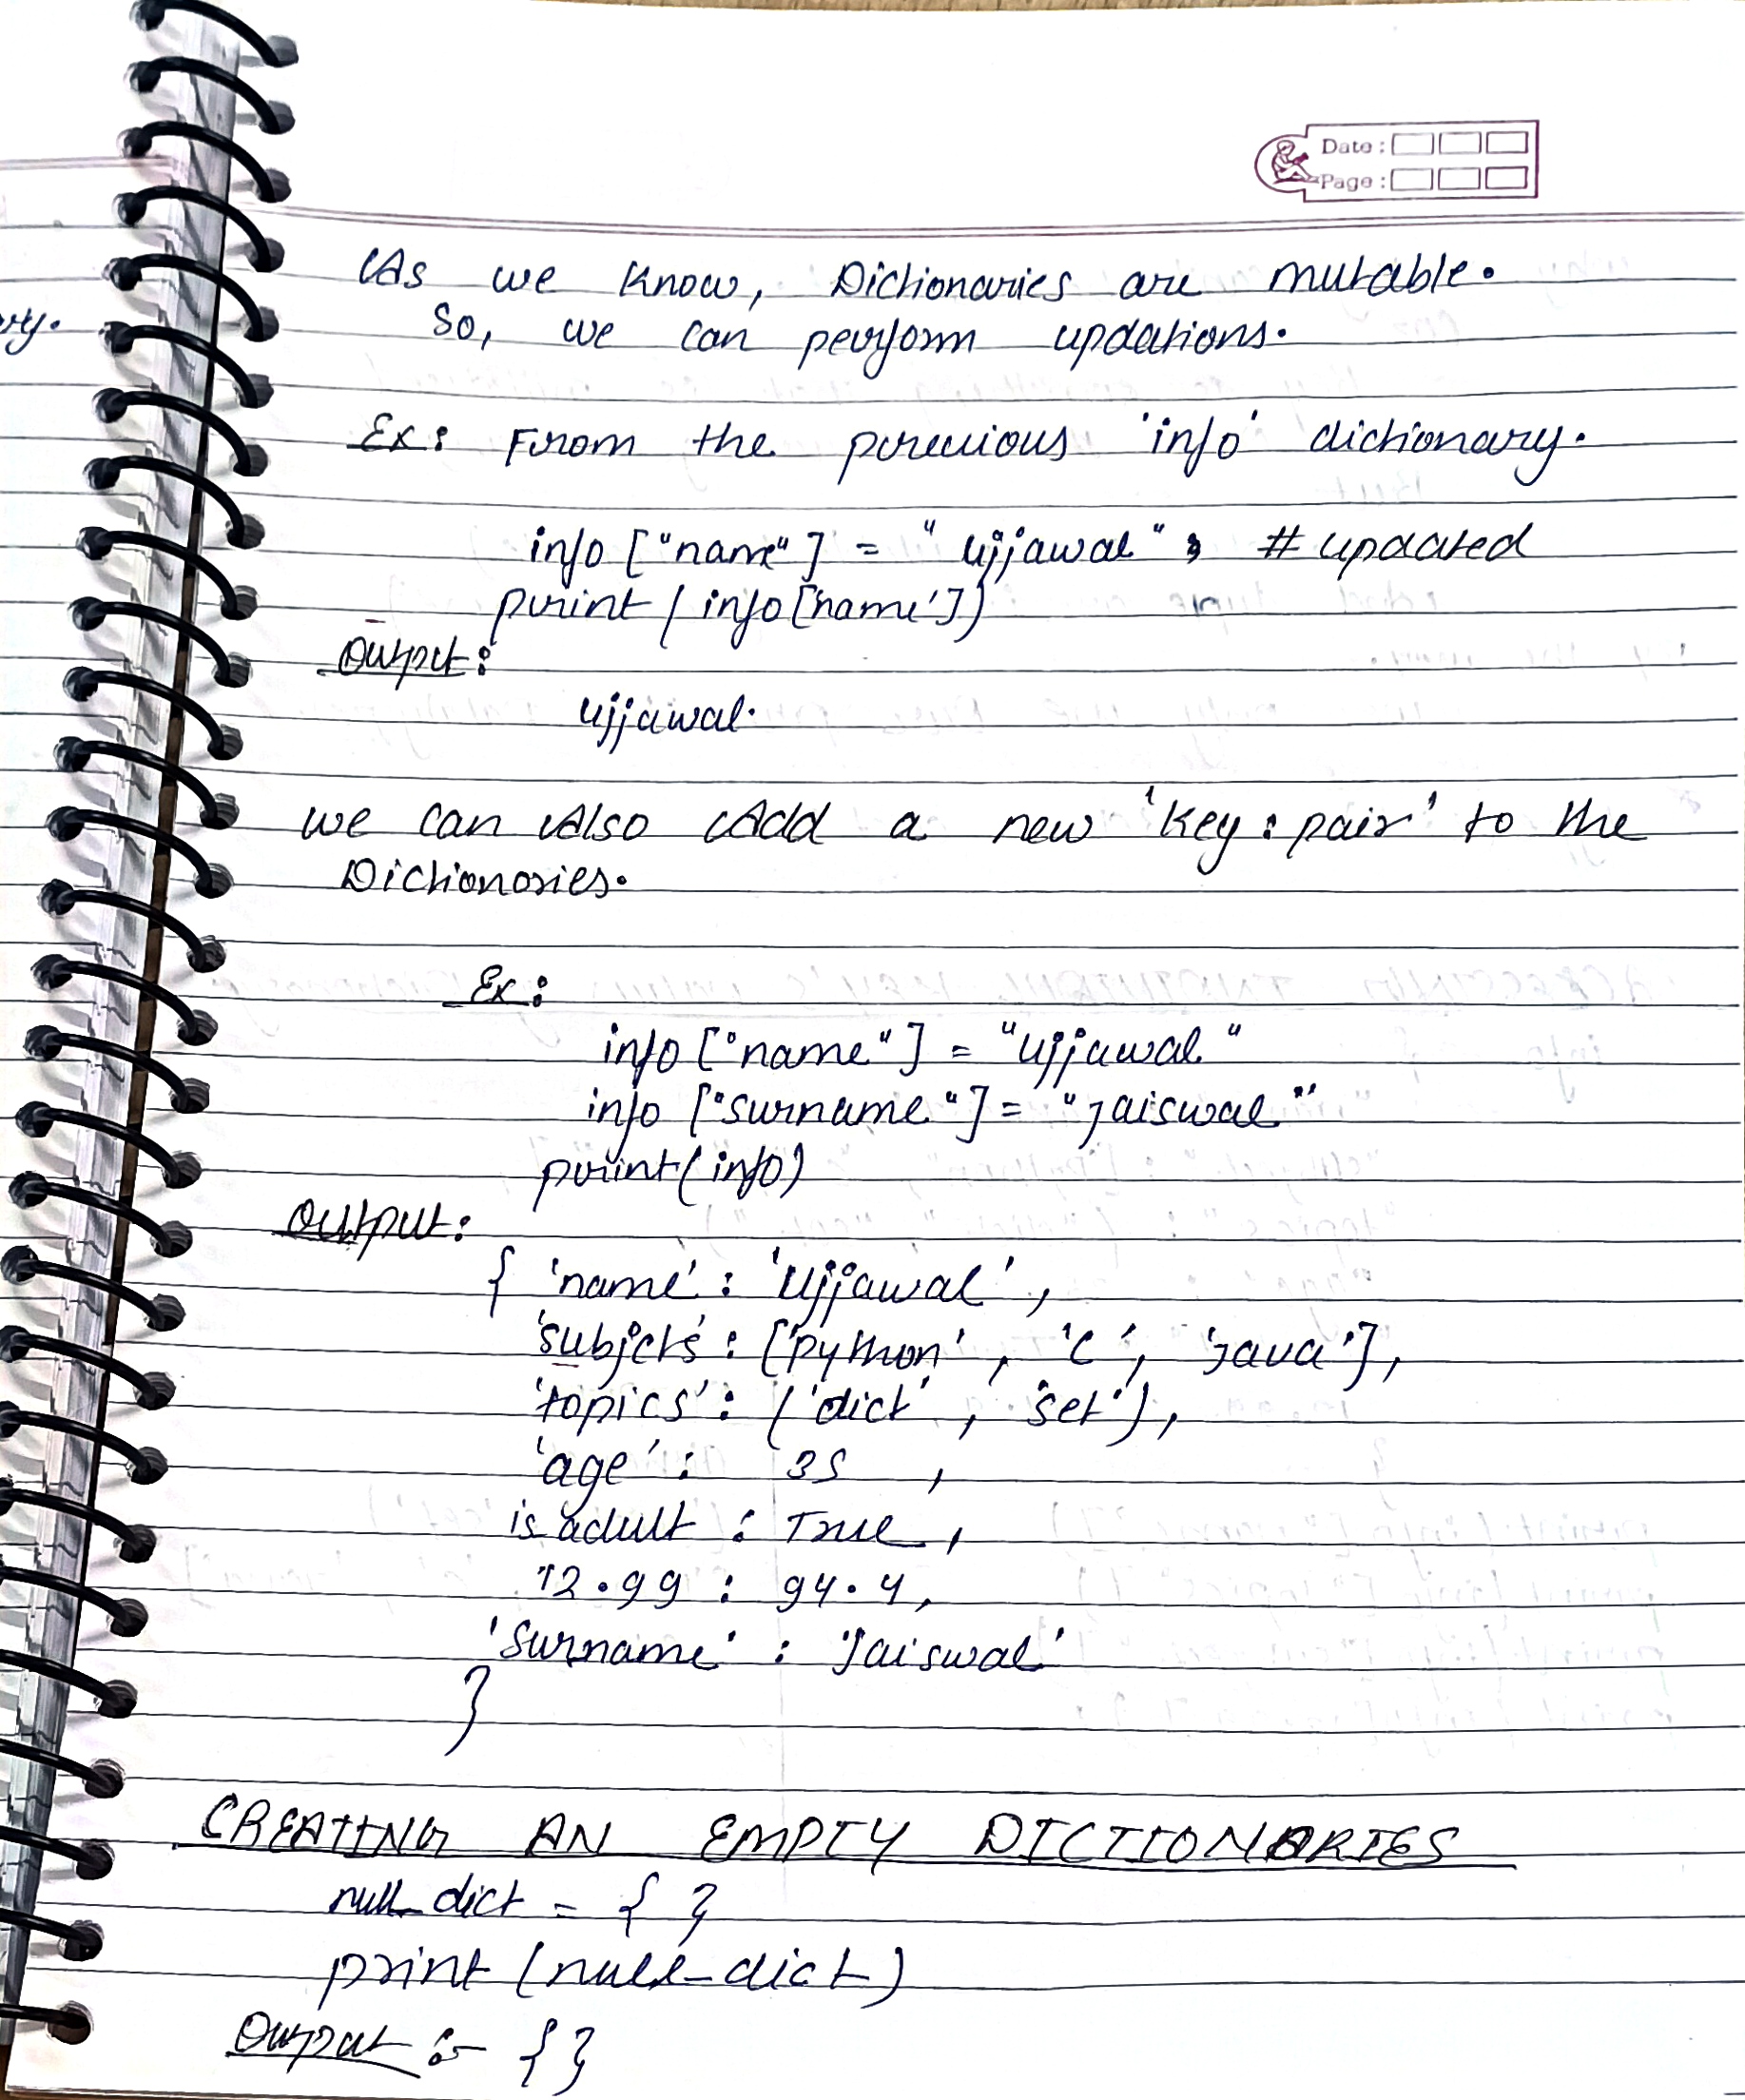 Date :
Page :
As we know, Dictionaries are mutable.
So, we can perform updations.
Ex: From the previous 'info' dictionary.
info ["name"] = "ujjawal" # updated
print (info['name'])
Output:
ujjawal.
we can Also Add a new 'key : pair' to the
Dictionaries.
Ex:
info ["name"] = "ujjawal"
info ["surname"] = "jaiswal"
print(info)
Output:
{ 'name' : 'Ujjawal' ,
'subjcts' : ['python' , 'C' , 'java'],
'topics' : ('dict' , 'set'),
'age' : 35 ,
is adult : True ,
12.99 : 94.4,
'Surname' : 'Jaiswal'
}
CREATING AN EMPTY DICTIONARIES
null_dict = { }
print (null_dict)
Output :- { }